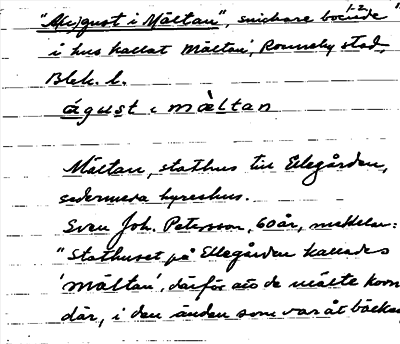 "A(u)gust i Mältan", snickare boende
i hus kallat Mältan, Ronneby stad,
Blek. l.
águst i mæ̀ltan
Mältan, stathus till Ellegården,
sedermera hyreshus.
Sven Joh. Petersson, 60 år, meddelar:
"Stathuset på Ellegården kallades
'mältan', därför att de mälte korn
där, i den änden som var åt bäcken